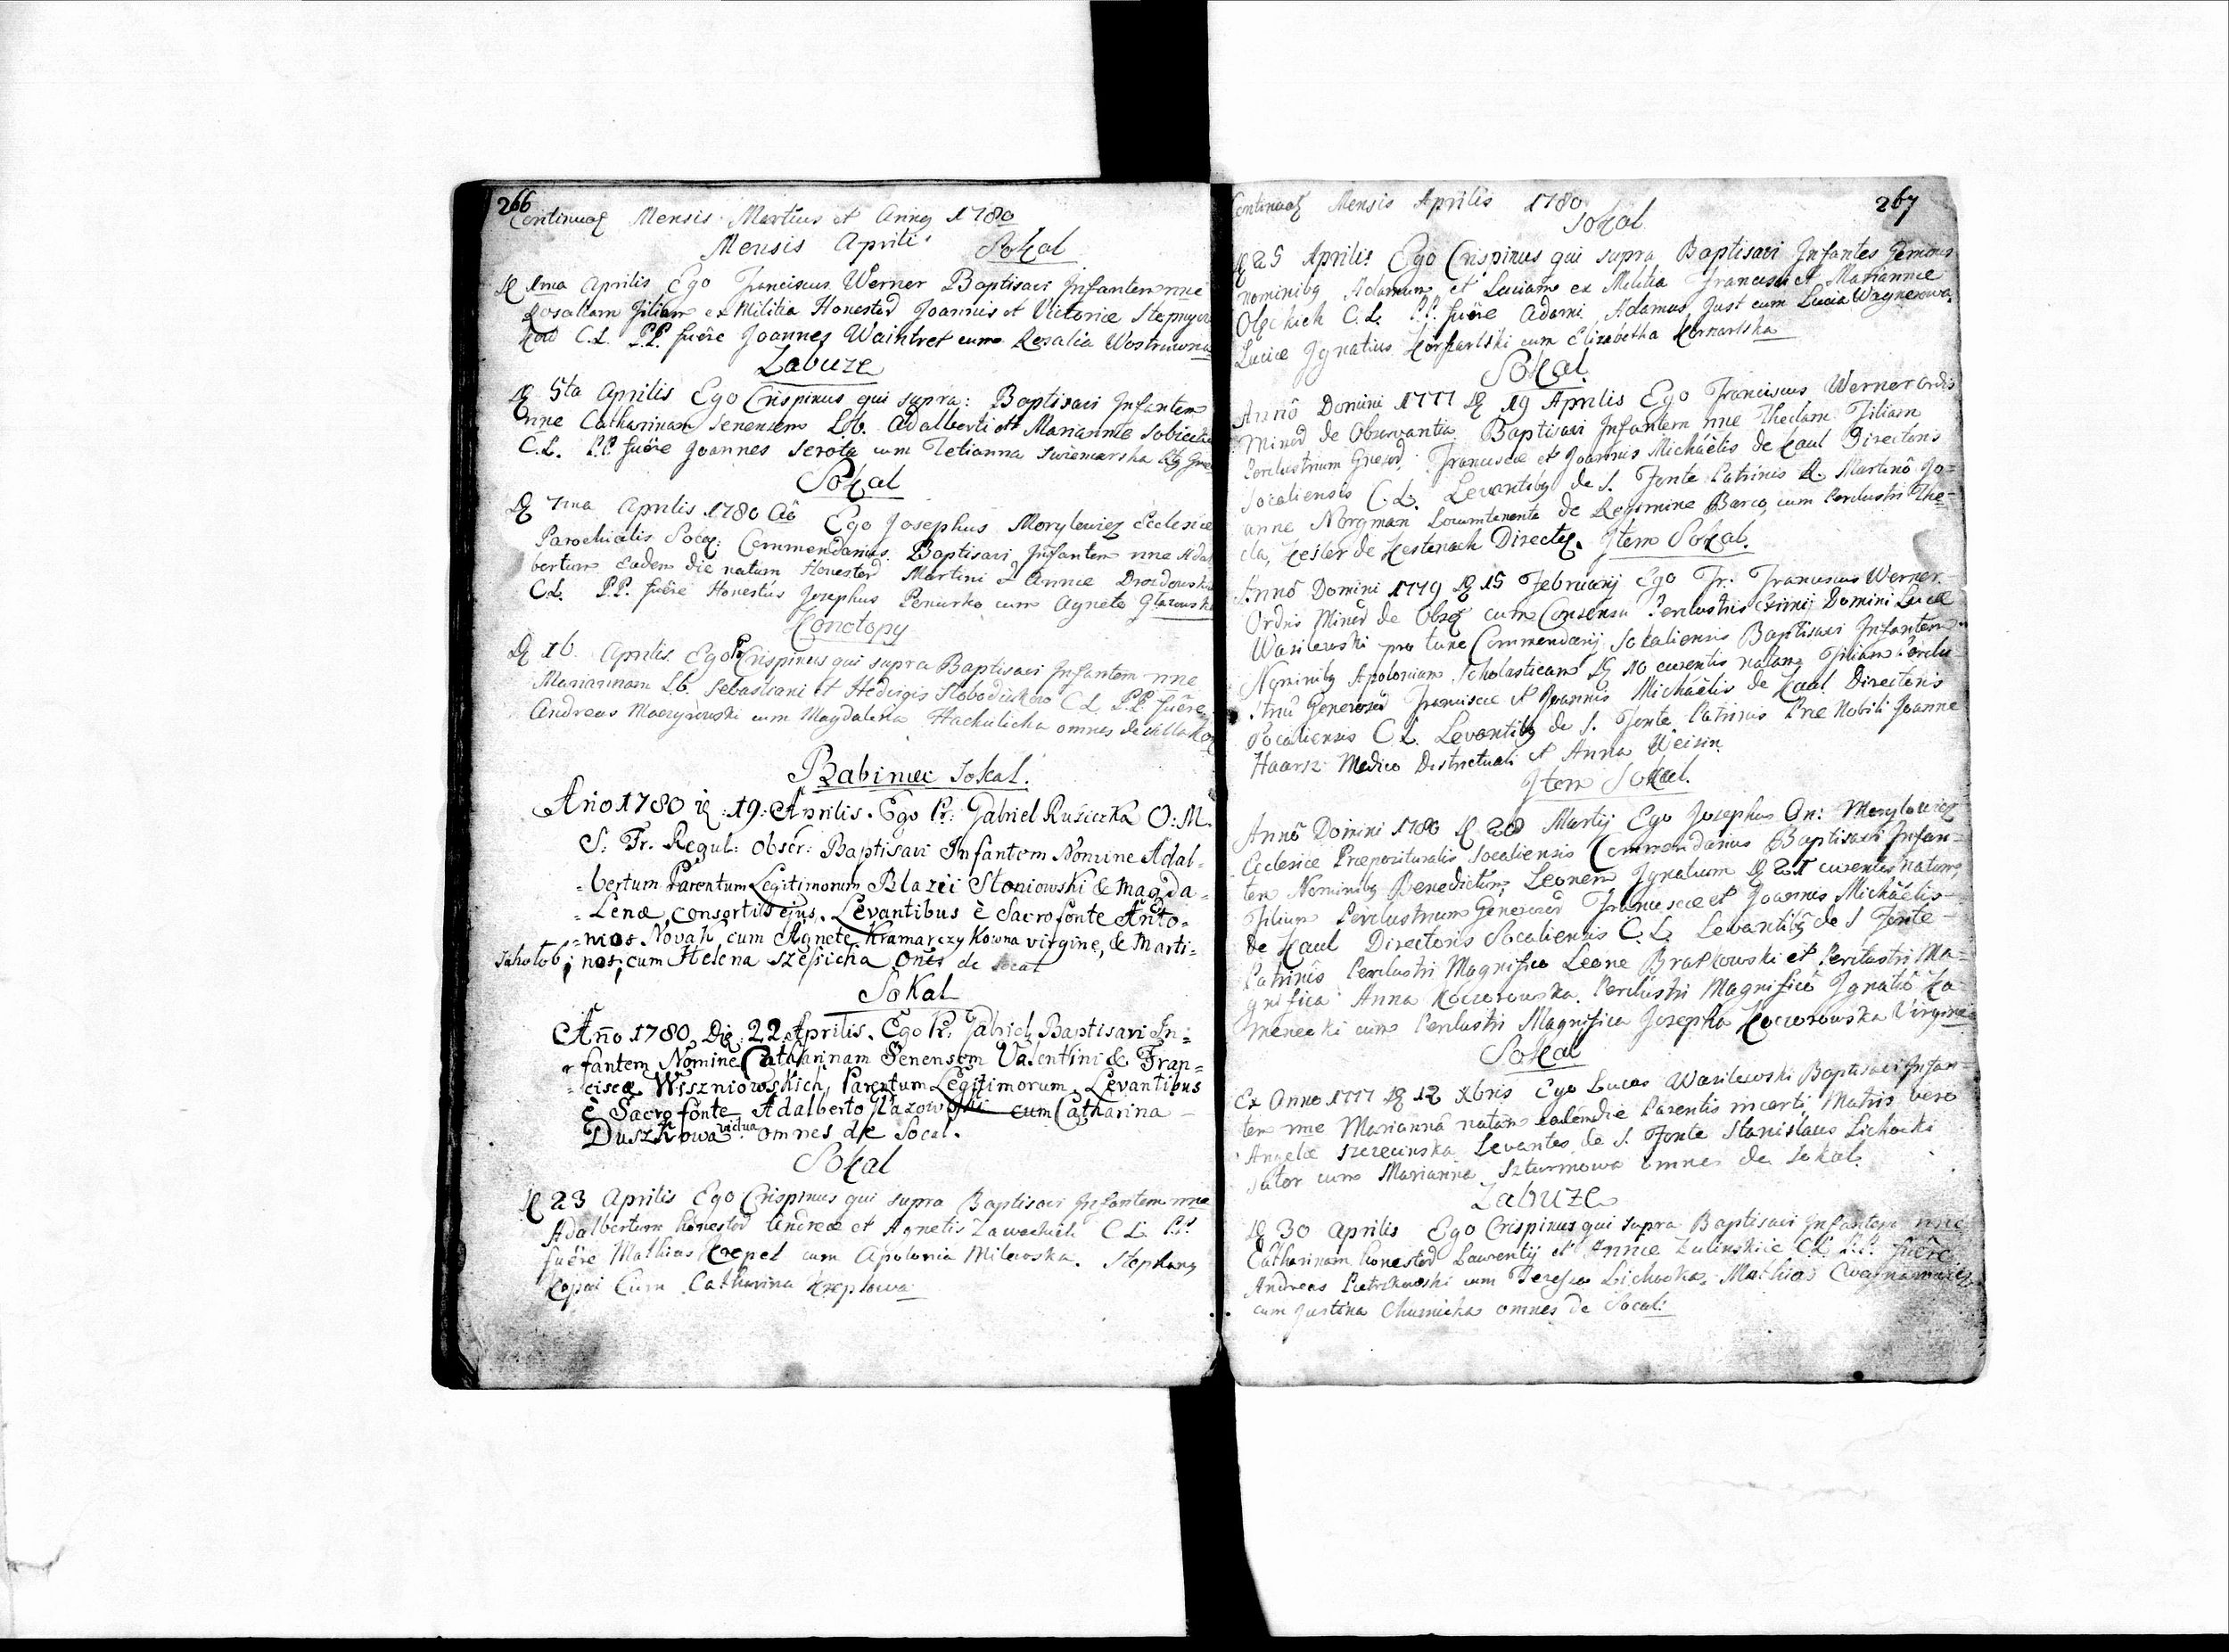 266
Continuaõ Mensis Martius et Anny 1780
Mensis Aprili
Sokal
1ma Aprilis Ego Franciscus Werner Baptisavi Infantem nne
Rosaliam Filiam ex Militia Honestor Joannis et Victoriæ
C.L. P.P. fuêre Joannes Waintret cum Rosalia
Zabuze
5ta Aprilis Ego Crispinus qui supra: Baptisavi Infantem
nne Catharinam Senensem Lb. Adalberti et Mariannæ
C.L. P.P. fuêre Joannes Serota cum Tetianna
Sokal
7ma Aprilis 1780 Aô Ego Josephus Morylewicz Ecclesiæ
Parochialis Socal: Commendarius Baptisavi Infantem nne Adal
bertum Eadem die natum Honestor Martini et Annæ
C.L. P.P. fuêre Honestus Josephus Peniurko cum Agnete
Konotopy
16 Aprilis Ego Pr Crispinus qui supra Baptisavi Infantem nne
Mariannam Lb. Sebastiani et Hedvigis C.L. P.P. fuêre
Andreas cum Magdalena Hachulicha omnes de villa
Babiniec Sokal.
Año 1780 :19: Aprilis. Ego Pr: Gabriel Rusiczka O: M.
S: Fr. Regul: obser: Baptisavi Infantem Nomine Adal-
-bertum Parentum Legitimorum Blazii Stoniowski & Magda-
-Lenæ, consortis ejus. Levantibus è Sacro fonte Anto-
-nios Novak, cum Agnete Kramarczykowna virgine, & Marti-
nos, cum Helena onês de Socal
Sokal
Año 1780, Die 22 Aprilis. Ego Pr: Gabriel, Baptisavi In=
fantem Nomine Catharinam Senensem Valentini & Fran=
=ciscæ Wiszniowskich, Parentum Legitimorum. Levantibus
è Sacro fonte Adalberto cum Catharina
Duszkowa vidua omnes de Socal.
Sokal
23 Aprilis Ego Crispinus qui supra Baptisavi Infantem nne
Adalbertum honestor Andreæ et Agnetis Zawadzkich C.L. P.P.
fuêre Mathias Krepel cum Apolonia Milewska. Stephany
Kopai Cum Catharina Kreplowa
267
Continuaõ Mensis Aprilis 1780
Sokal
25 Aprilis Ego Crispinus qui supra Baptisavi Infantes Gemeos
nominibg Adamum et Luciam ex Militia Francisci et Mariannæ
C.L. P.P. fuêre Adami Adamus Just cum Lucia Wagnerowa
Luciæ Ignatius cum Elizabetha
Sokal.
Annô Domini 1777 19 Aprilis Ego Franciscus Werner Ordis
Minor de Observantia Baptisavi Infantem nne Theclam Filiam
Perillustrium Gneror Franciscæ et Joannis Michaëlis de Kaul Directoris
Socaliensis C.L. Levantibg de S. Fonte Patrinis D. Martinô Jo=
anne Norgman Locumtenente de Regimine Barco, cum Perillustri The-
cla, Keiler de Kestenach Item Sokal.
Annô Domini 1779 15 Februarij Ego Fr. Franciscus Werner
Ordis Minor de Obser cum Consensu Perillustris Eximij Domini Lucæ
Wasilewski pro tunc Commendarij Sokaliensis Baptisavi Infantem
Nominibg Apoloniam Scholasticam 10 curentis natam Filiam Perillu
strium Generosor Franciscæ et Joannis Michaëlis de Kaul Directoris
Socaliensis C.L. Levantibg de S. Fonte Patrinis Præ Nobili Joanne
Haarsz Medico Districtuali et Anna Weisin
Item Sokal.
Annô Domini 1780 Martij Ego Josephus An: Morylowicz
Ecclesiæ Præpositturalis Socaliensis Commendarius Baptisavi Infan=
tem Nominibg Benedictum, Leonem Ignatium 21 curentis natum,
Filium Perillustrium Generosor Franciscæ et Joannis Michaëlis
de Kaul Directoris Socaliensis C.L. Levantibg de S Fonte
Patrinis Perillustri Magnifico Leone Bratkowski et Perillustri Ma=
gnifica Anna Perillustri Magnificô Ignatiô Ka
menecki cum Perillustri Magnifica Josepha Virgine
Sokal
Ex Anno 1777 12 xbris Ego Lucas Wasilewski Baptisavi Infan=
tem nne Marianna natam eadem die Parentis incerti, Matris vero
Angelæ Szczecinska Levantes de S. Fonte Stanislaus Lichocki
Sutor cum Marianna Szturmowa omnes de Sokal.
Zabuze
30 Aprilis Ego Crispinus qui supra Baptisavi Infantem nne
Catharinam honestor Laurentij et Annæ C.L. P.P. fuêre
Andreas cum Teressa Lichocka, Mathias
cum Justina omnes de Socal: